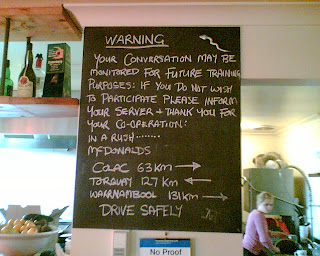 WARNING
YOUR CONVERSATION MAY BE
MONITORED FOR FUTURE TRAINING
PURPOSES: IF YOU DO NOT WISH
TO PARTICIPATE PLEASE INFORM
YOUR SERVER + THANK YOU FOR
YOUR CO-OPERATION:
IN A RUSH ........
McDONALDS
COLAC 63 KM →
TORQUAY 127 KM ←
WARRNAMBOOL 131 KM →
DRIVE SAFELY
No Proof